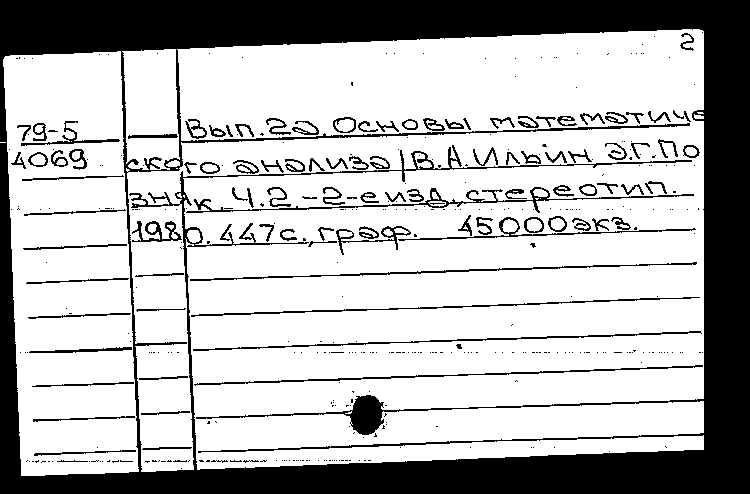 2
79-5 Вып.2а. Основы математиче
4069 ского анализа / В.А.Ильин, Э.Г.По
зняк. Ч.2.-2-е изд., стереотип.
1980. 447с., граф. 45000экз.